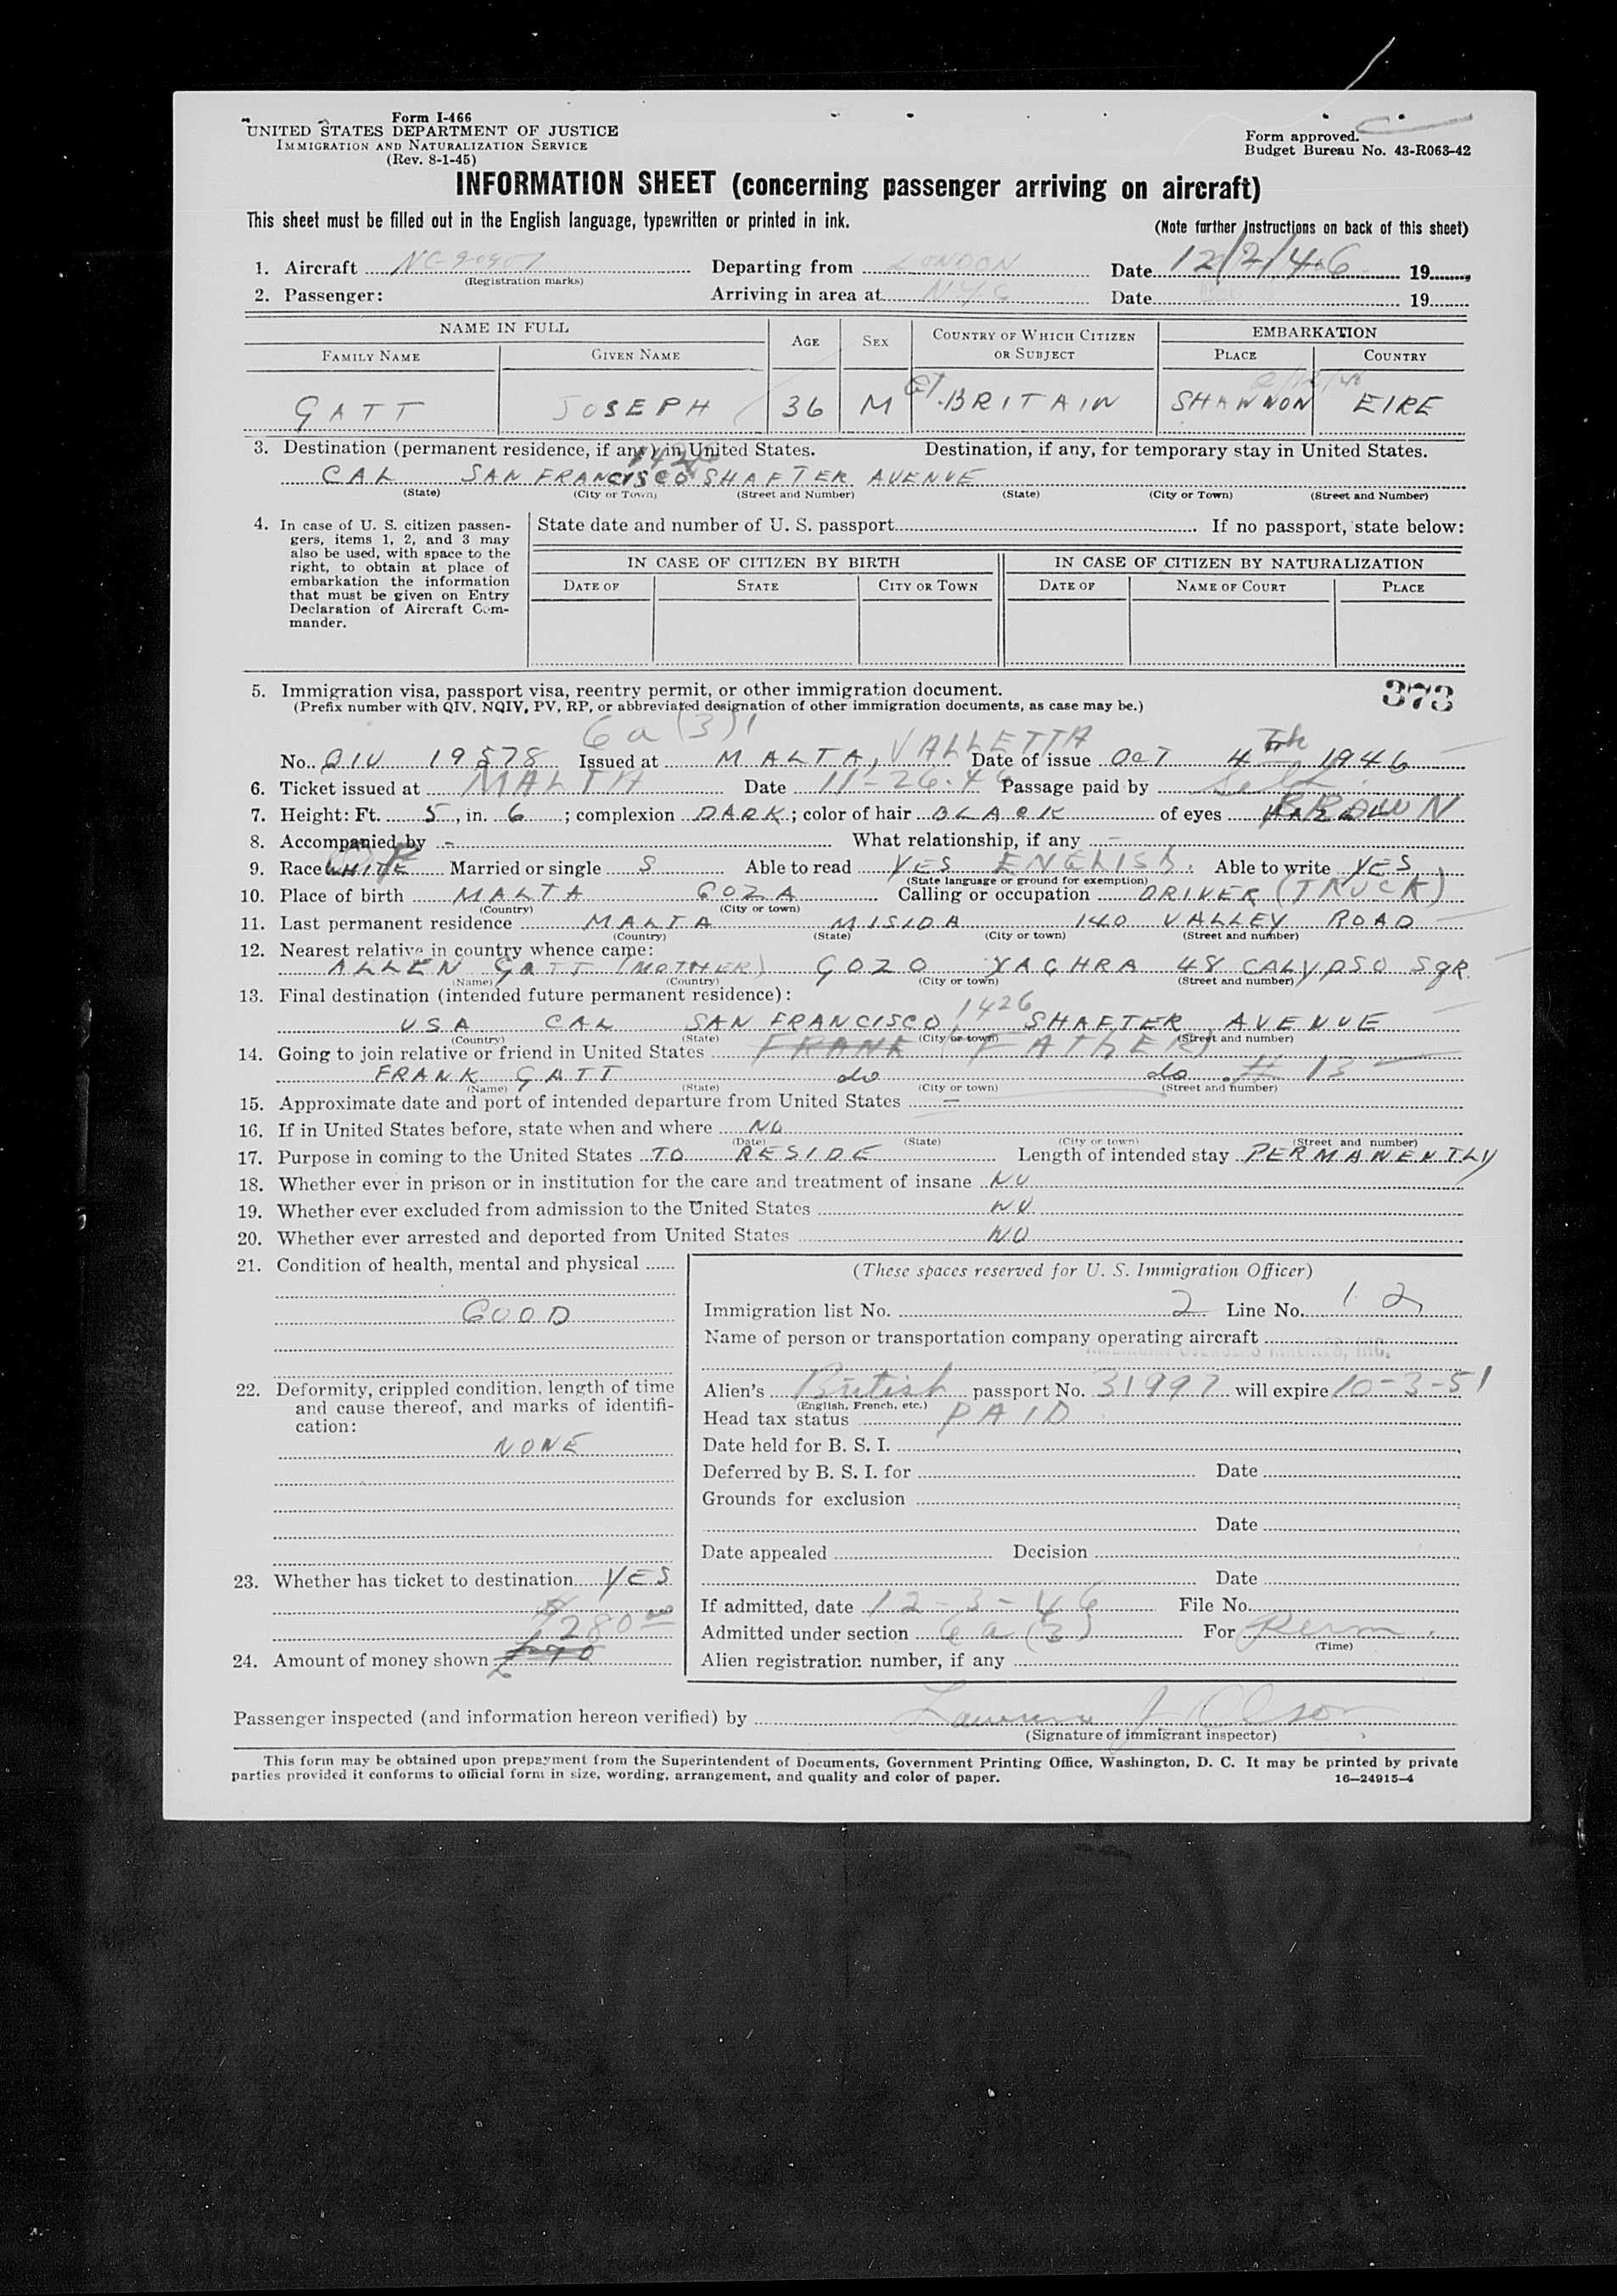 Form I-466
UNITED STATES DEPARTMENT OF JUSTICE
IMMIGRATION AND NATURALIZATION SERVICE
(Rev. 8-1-45)
Form approved.
Budget Bureau No. 43-R063-42
INFORMATION SHEET (concerning passenger arriving on aircraft)
This sheet must be filled out in the English language, typewritten or printed in ink.
(Note further instructions on back of this sheet)
1. Aircraft NC-90907 Departing from LONDON Date 12/2/46 19
(Registration marks)
2. Passenger: Arriving in area at NYC Date 19
NAME IN FULL AGE SEX COUNTRY OF WHICH CITIZEN OR SUBJECT EMBARKATION
FAMILY NAME GIVEN NAME PLACE COUNTRY
GATT JOSEPH 36 M GT. BRITAIN SHANNON EIRE
3. Destination (permanent residence, if any) in United States. Destination, if any, for temporary stay in United States.
CAL SAN FRANCISCO 1426 SHAFTER AVENUE
(State) (City or Town) (Street and Number) (State) (City or Town) (Street and Number)
4. In case of U. S. citizen passengers, items 1, 2, and 3 may also be used, with space to the right, to obtain at place of embarkation the information that must be given on Entry Declaration of Aircraft Commander.
State date and number of U. S. passport If no passport, state below:
IN CASE OF CITIZEN BY BIRTH IN CASE OF CITIZEN BY NATURALIZATION
DATE OF STATE CITY OR TOWN DATE OF NAME OF COURT PLACE
5. Immigration visa, passport visa, reentry permit, or other immigration document.
373
(Prefix number with QIV, NQIV, PV, RP, or abbreviated designation of other immigration documents, as case may be.)
6a(3)
No. QIV 19578 Issued at MALTA, VALLETTA Date of issue OCT 4th 1946
6. Ticket issued at MALTA Date 11-26-46 Passage paid by Self
7. Height: Ft. 5, in. 6; complexion DARK; color of hair BLACK of eyes BROWN
8. Accompanied by - What relationship, if any -
9. Race WHITE Married or single S Able to read YES ENGLISH. Able to write YES
(State language or ground for exemption)
10. Place of birth MALTA GOZA Calling or occupation DRIVER (TRUCK)
(Country) (City or town)
11. Last permanent residence MALTA MISIDA 140 VALLEY ROAD
(Country) (State) (City or town) (Street and number)
12. Nearest relative in country whence came:
ALLEN GATT (MOTHER) GOZO XAGHRA 48 CALYPSO SQR
(Name) (Country) (City or town) (Street and number)
13. Final destination (intended future permanent residence):
USA CAL SAN FRANCISCO, 1426 SHAFTER AVENUE
(Country) (State) (City or town) (Street and number)
14. Going to join relative or friend in United States FRANK (FATHER)
FRANK GATT do do # 13
(Name) (State) (City or town) (Street and number)
15. Approximate date and port of intended departure from United States -
16. If in United States before, state when and where NO
(Date) (State) (City or town) (Street and number)
17. Purpose in coming to the United States TO RESIDE Length of intended stay PERMANENTLY
18. Whether ever in prison or in institution for the care and treatment of insane NO
19. Whether ever excluded from admission to the United States NO
20. Whether ever arrested and deported from United States NO
21. Condition of health, mental and physical
GOOD
22. Deformity, crippled condition, length of time and cause thereof, and marks of identification:
NONE
23. Whether has ticket to destination YES
$280.00
24. Amount of money shown £90
(These spaces reserved for U. S. Immigration Officer)
Immigration list No. 2 Line No. 12
Name of person or transportation company operating aircraft
Alien's British passport No. 31997 will expire 10-3-51
(English, French, etc.)
Head tax status PAID
Date held for B. S. I.
Deferred by B. S. I. for Date
Grounds for exclusion
Date
Date appealed Decision
Date
If admitted, date 12-3-46 File No.
Admitted under section 6a(3) For Perm.
(Time)
Alien registration number, if any
Passenger inspected (and information hereon verified) by Lawrence J Olson
(Signature of immigrant inspector)
This form may be obtained upon prepayment from the Superintendent of Documents, Government Printing Office, Washington, D. C. It may be printed by private
parties provided it conforms to official form in size, wording, arrangement, and quality and color of paper.
16-24915-4